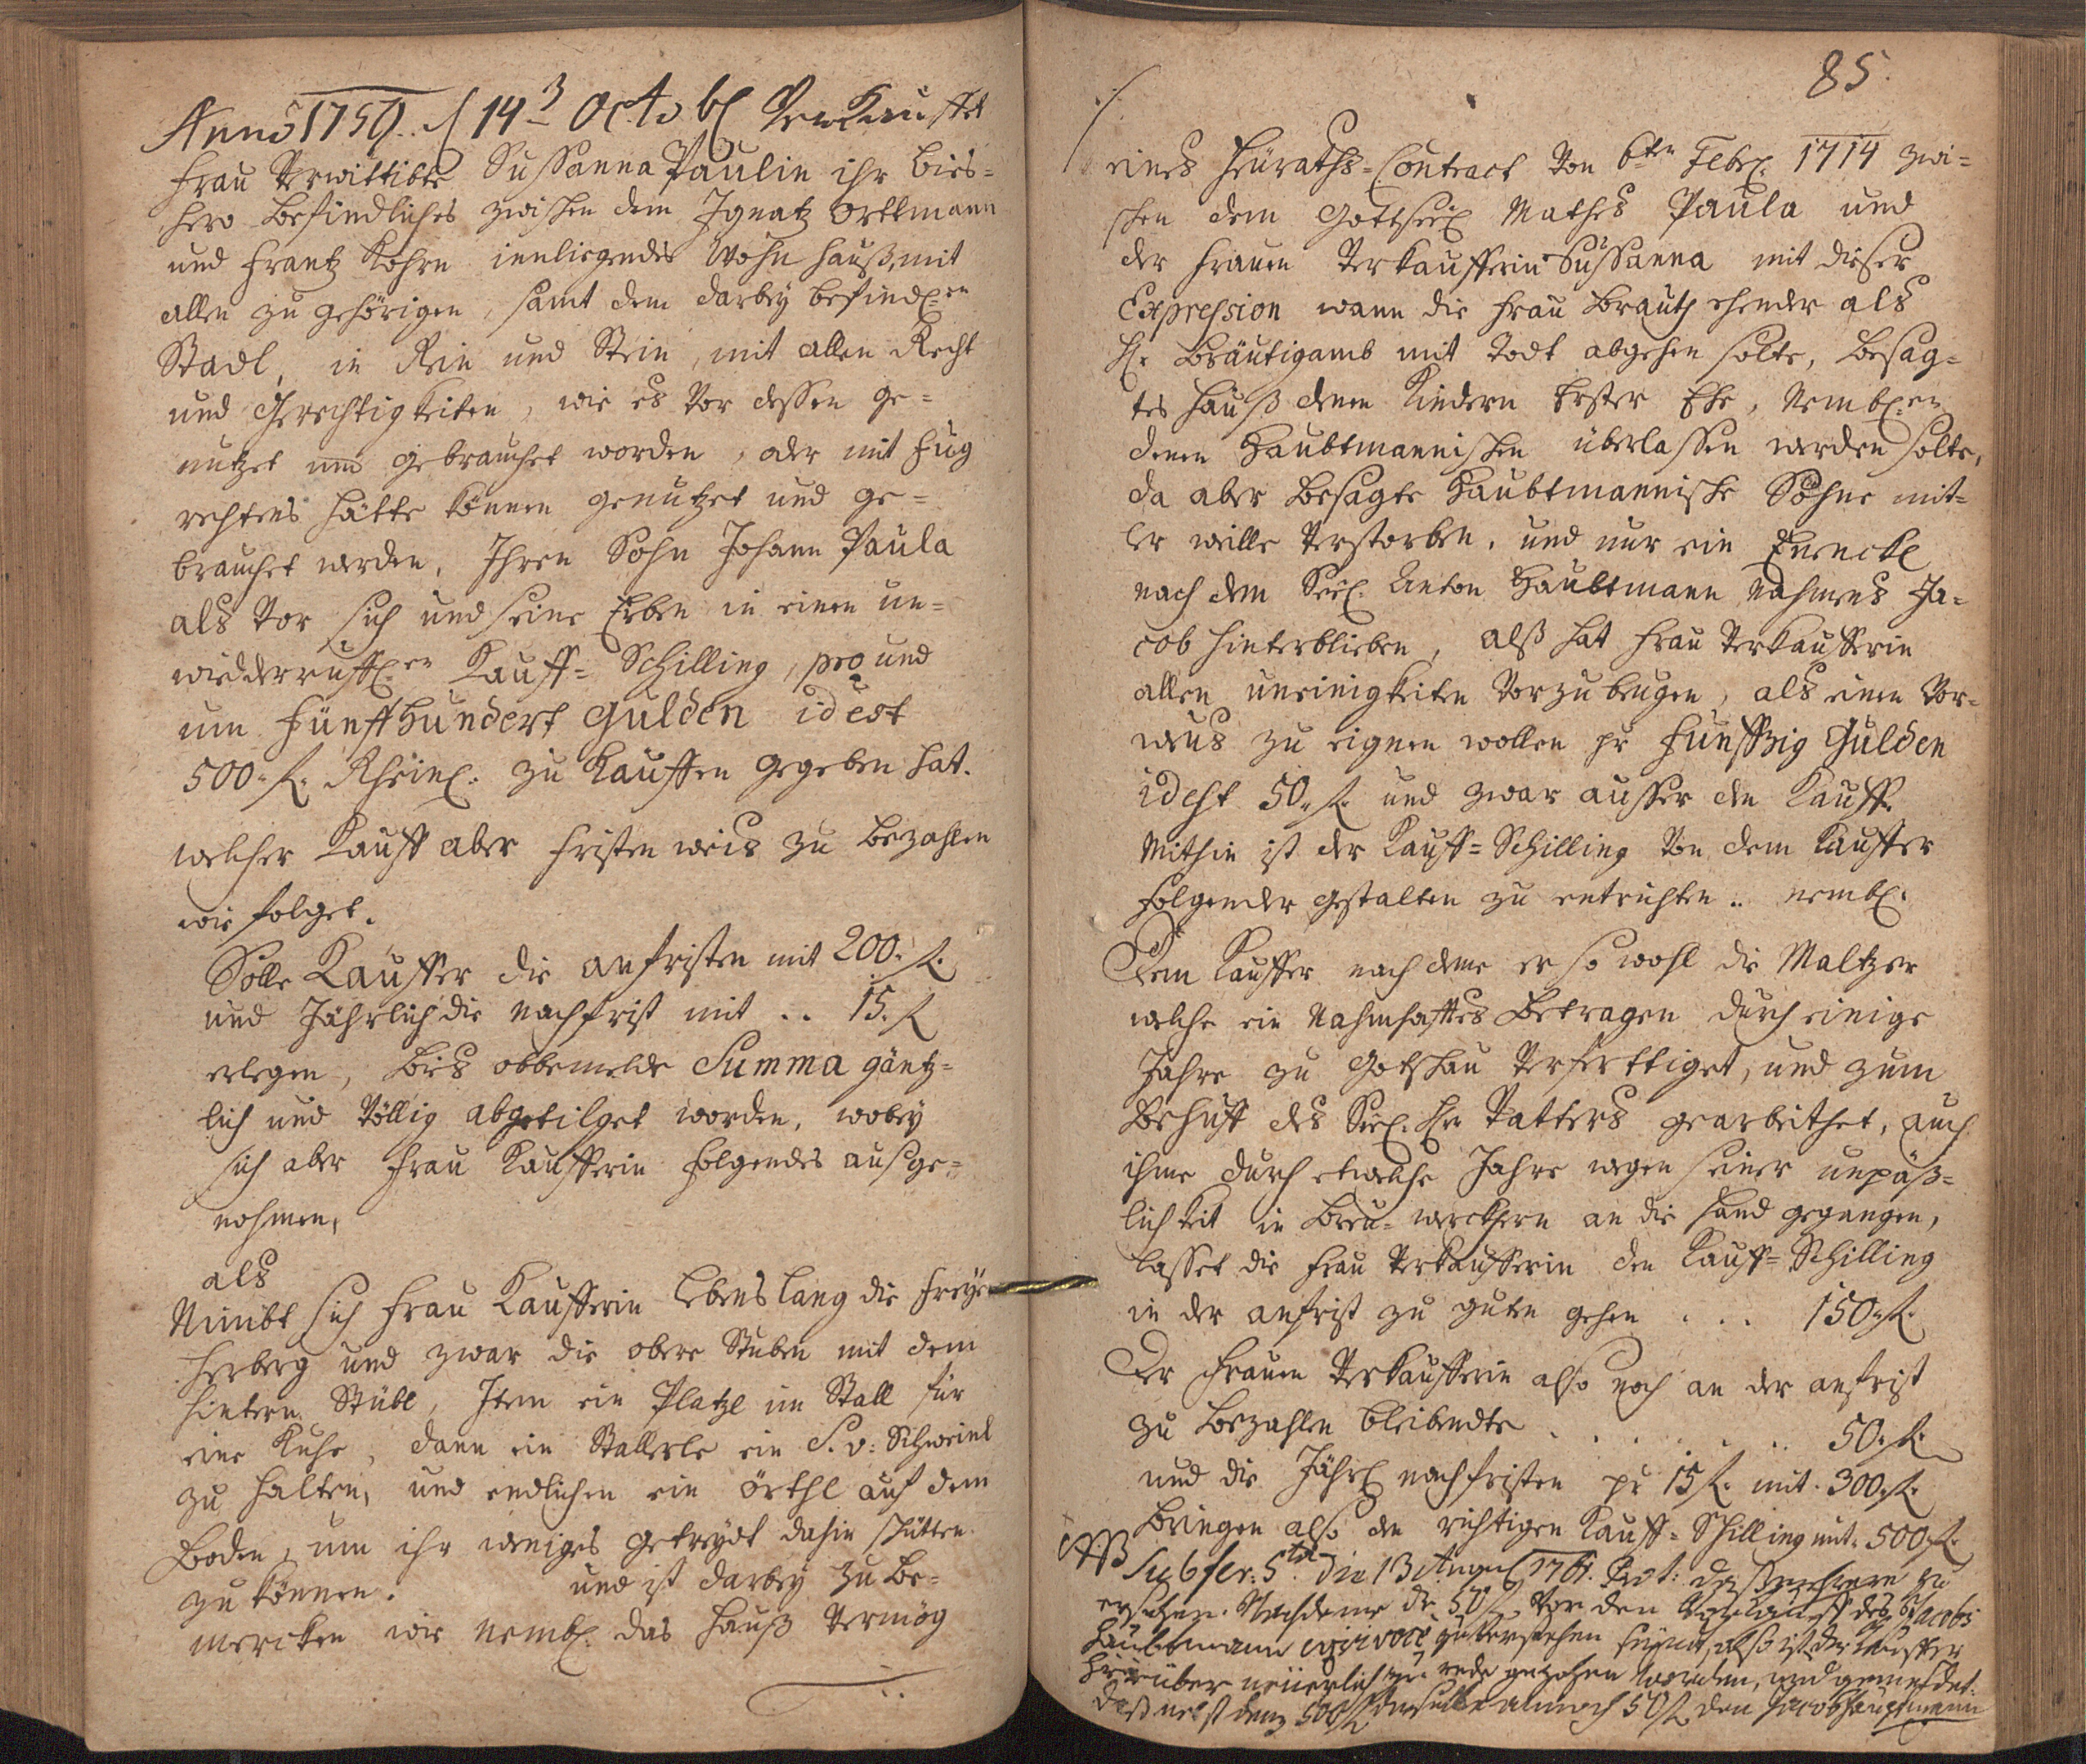 Anno 1750. d 14ᵗ Octobl Verkaufft
Frau Verwittibte Susanna Paulin ihr bies=
hero befindliches zwischen dem Ignatz Orttmann
und Frantz Kohrn innligendes Wohn Hauß, mit
allen zu gehörigen, samt dem darbey befindl.en
Stadl, in Rein und Stein, mit allen Recht
und Gerechtigkeiten, wie es vor dessen ge=
nutzet und gebrauchet worden, oder mit Fug
rechtens hätte können genutzet und ge=
brauchet werden, Ihren Sohn Johann Paula
als vor sich und seine Erben in einen un=
widderruffl.en Kauff= Schilling, pro und
um Fünffhundert Gulden id est
500. f. Rheinl. zu Kauffen gegeben hat.
welcher Kauff aber fristen weis zu bezahlen
wie folget.
Solle Kauffer die anfristen mit 200. f.
und Jährlich die nachfrist mit .. 15. f
erlegen, bies obbemelde Summa gäntz=
lich und völlig abgetilget worden, wobey
sich aber Frau Kaufferin folgendes ausge=
nohmen,
als
Nimbt sich Frau Kaufferin lebenslang die freye
Herberg und zwar die obere Stuben mit dem
hintern Stübl, Item ein Platzl im Stall für
eine Kuhe, dann ein Stallerle ein S. v: Schweinl
zu halten, und endlichen ein örthl auf dem
Boden, um ihr weniges getreydt dahin schütten
zu können. und ist darbey zu be=
mercken wie nembl. das Hauß vermög
85.
eines Heuraths=Contract von 6ten Febr. 1714 zwi=
schen dem Gottseel Mathes Paula und
der Frauen Verkaufferin Sussanna mit dieser
Expression wann die Frau Brauth ehender als
H. Bräutigamb mit Todt abgehen solte, besag=
tes Hauß denen Kindern Erster Ehe, Nembl.en
denen Haubtmannischen überlassen werden solte,
da aber besagte Haubtmannische Söhne mit=
ler weille verstorben, und nur ein Enenckl
nach dem Seel. Anton Haubtmann nahmens Ja=
cob hinterblieben, alß hat Frau Verkaufferin
allen uneinigkeiten vorzubeugen, als einen Vor=
aus zu eignen wollen pr Funffzig Gulden
idest 50. f. und zwar ausser den Kauff.
Mithin ist der Kauff=Schilling von dem Kauffer
folgender gestalten zu entrichten .. nembl.
Dem Kauffer nach deme er so wohl die Maltzer
welche ein Nahmhafftes betragen durch einige
Jahre zu Gotschau verferttiget, und zum
Behuff des Seel. Hr. Vatters gearbeithet, auch
ihme durch etwelche Jahre wegen seiner unpäß=
lichkeit in Breu= werckhern an die Hand gegangen,
lasset die Frau Verkaufferin den Kauff= Schilling
in der anfrist zu guten gehen ... 150. f.
Der Frauen Verkaufferin also noch an der anfrist
zu bezahlen bleibendte ..... 50. f.
und die Jährl nachfristen pr 15 f. mit. 300. f.
bringen also den richtigen Kauff= Schilling mit. 500 f.
NB Sub fer: 5ta die 13 1761. Prot: zu
ersehen. Nachdeme die 50 f vor den des Jacobs
Haubtmann zuverstehen seynd, also ist der Kauffer
hierüber neuerlich zu rede gezohen worden, und gemeldet.
daß nebst denen 500 f annoch 50 f den Jacob Hauptmann